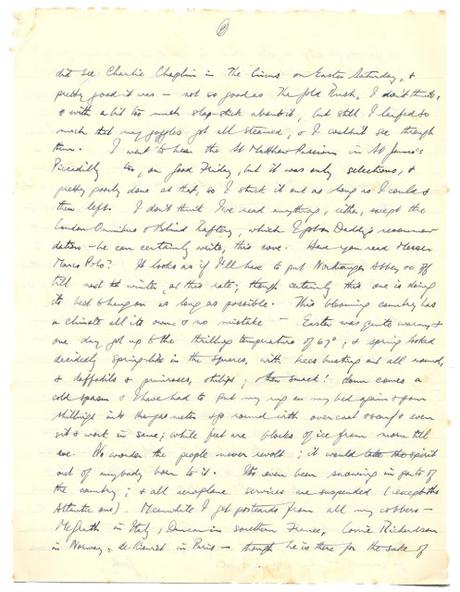 did see Charlie Chaplin in The Circus on Easter Saturday, &
pretty good it was – not so good as The Gold Rush, I don't think,
& with a bit too much slap-stick about it, but still I laughed so
much that my goggles got all steamed, & I couldn't see through
them. I went to hear the St Matthew Passion in St James's
Piccadilly too, on Good Friday, but it was only selections, &
pretty poorly done at that, so I stuck it out as long as I could &
then left. I don't think I've read anything, either, except the
London Omnibus & Blind Raftery, which I got on Daddy's recommen-
dation – he can certainly write, this cove. Have you read Messer
Marco Polo? It looks as if I'll have to put Northanger Abbey off
till next winter, at this rate; though certainly this one is doing
its best to hang on as long as possible. This blooming country has
a climate all its own & no mistake – Easter was quite warm, &
one day got up to the thrilling temperature of 67°; & spring looked
decidedly springlike in the squares, with trees busting out all round,
& daffodils & primroses, & tulips; then smack! down comes a
cold spasm & I have had to put my rug on my bed again & pour
shillings into the gas meter & go round with overcoat & scarf & even
sit & work in same; while feet are blocks of ice from morn till
eve. No wonder the people never revolt; it would take the spirit
out of anybody born to it. It's even been snowing in parts of
the country; & all aeroplane services are suspended (except the
Atlantic one). Meanwhile I get postcards from all my cobbers –
McGrath in Italy, Duncan in southern France, Lorrie Richardson
in Norway, de Kiewiet in Paris – though he is there for the sake of